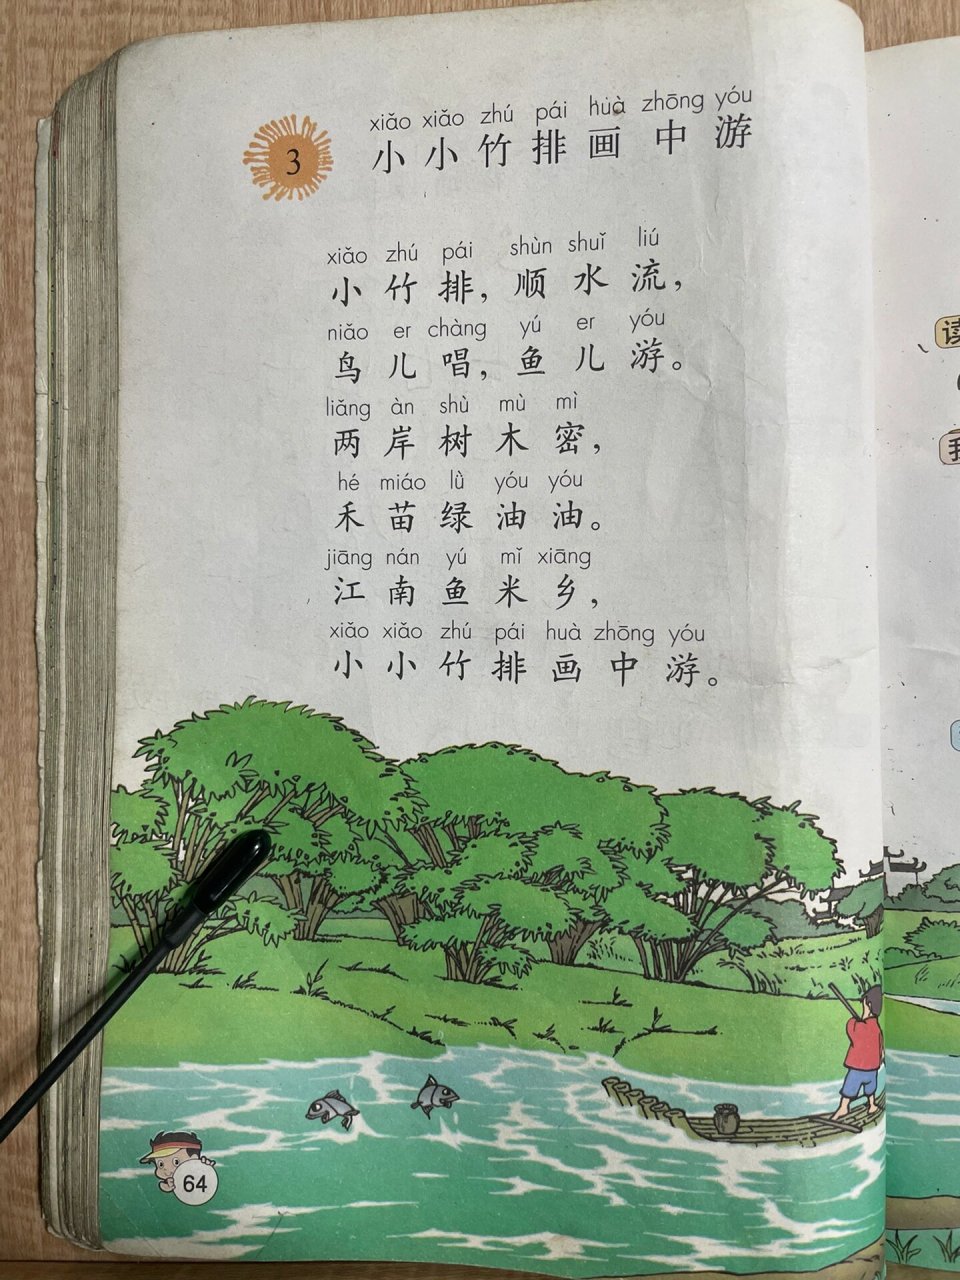 3
xiǎo xiǎo zhú pái huà zhōng yóu
小小竹排画中游
xiǎo zhú pái shùn shuǐ liú
小竹排，顺水流，
niǎo er chàng yú er yóu
鸟儿唱，鱼儿游。
liǎng àn shù mù mì
两岸树木密，
hé miáo lǜ yóu yóu
禾苗绿油油。
jiāng nán yú mǐ xiāng
江南鱼米乡，
xiǎo xiǎo zhú pái huà zhōng yóu
小小竹排画中游。
64
读
我